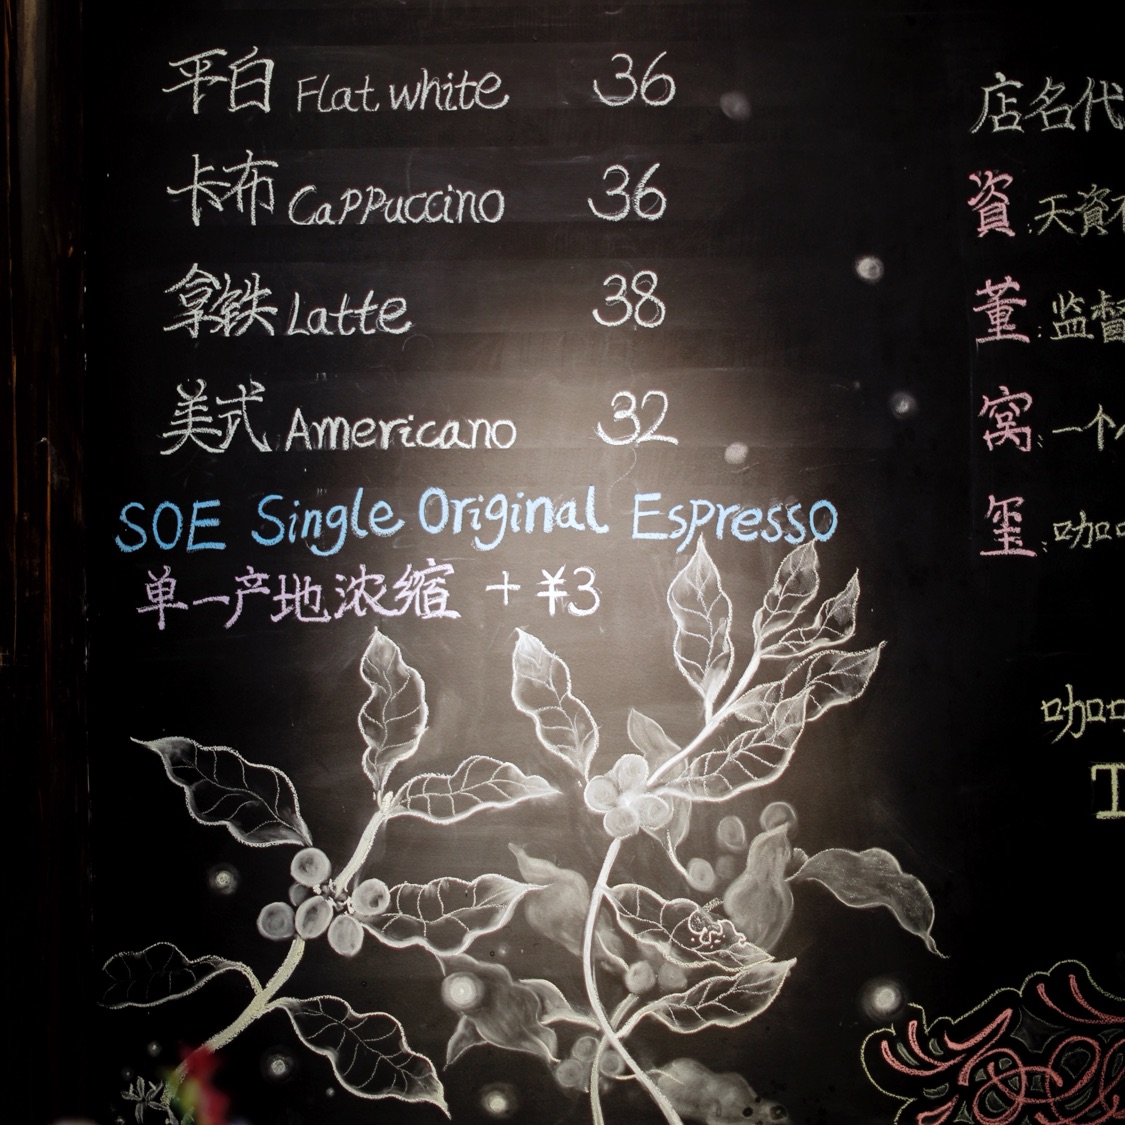 平白 Flat white 36
卡布 Cappuccino 36
拿铁 Latte 38
美式 Americano 32
SOE Single Original Espresso
单一产地浓缩 + ¥3
店名代
資:天資
董:监督
窝:一个
玺:咖
咖